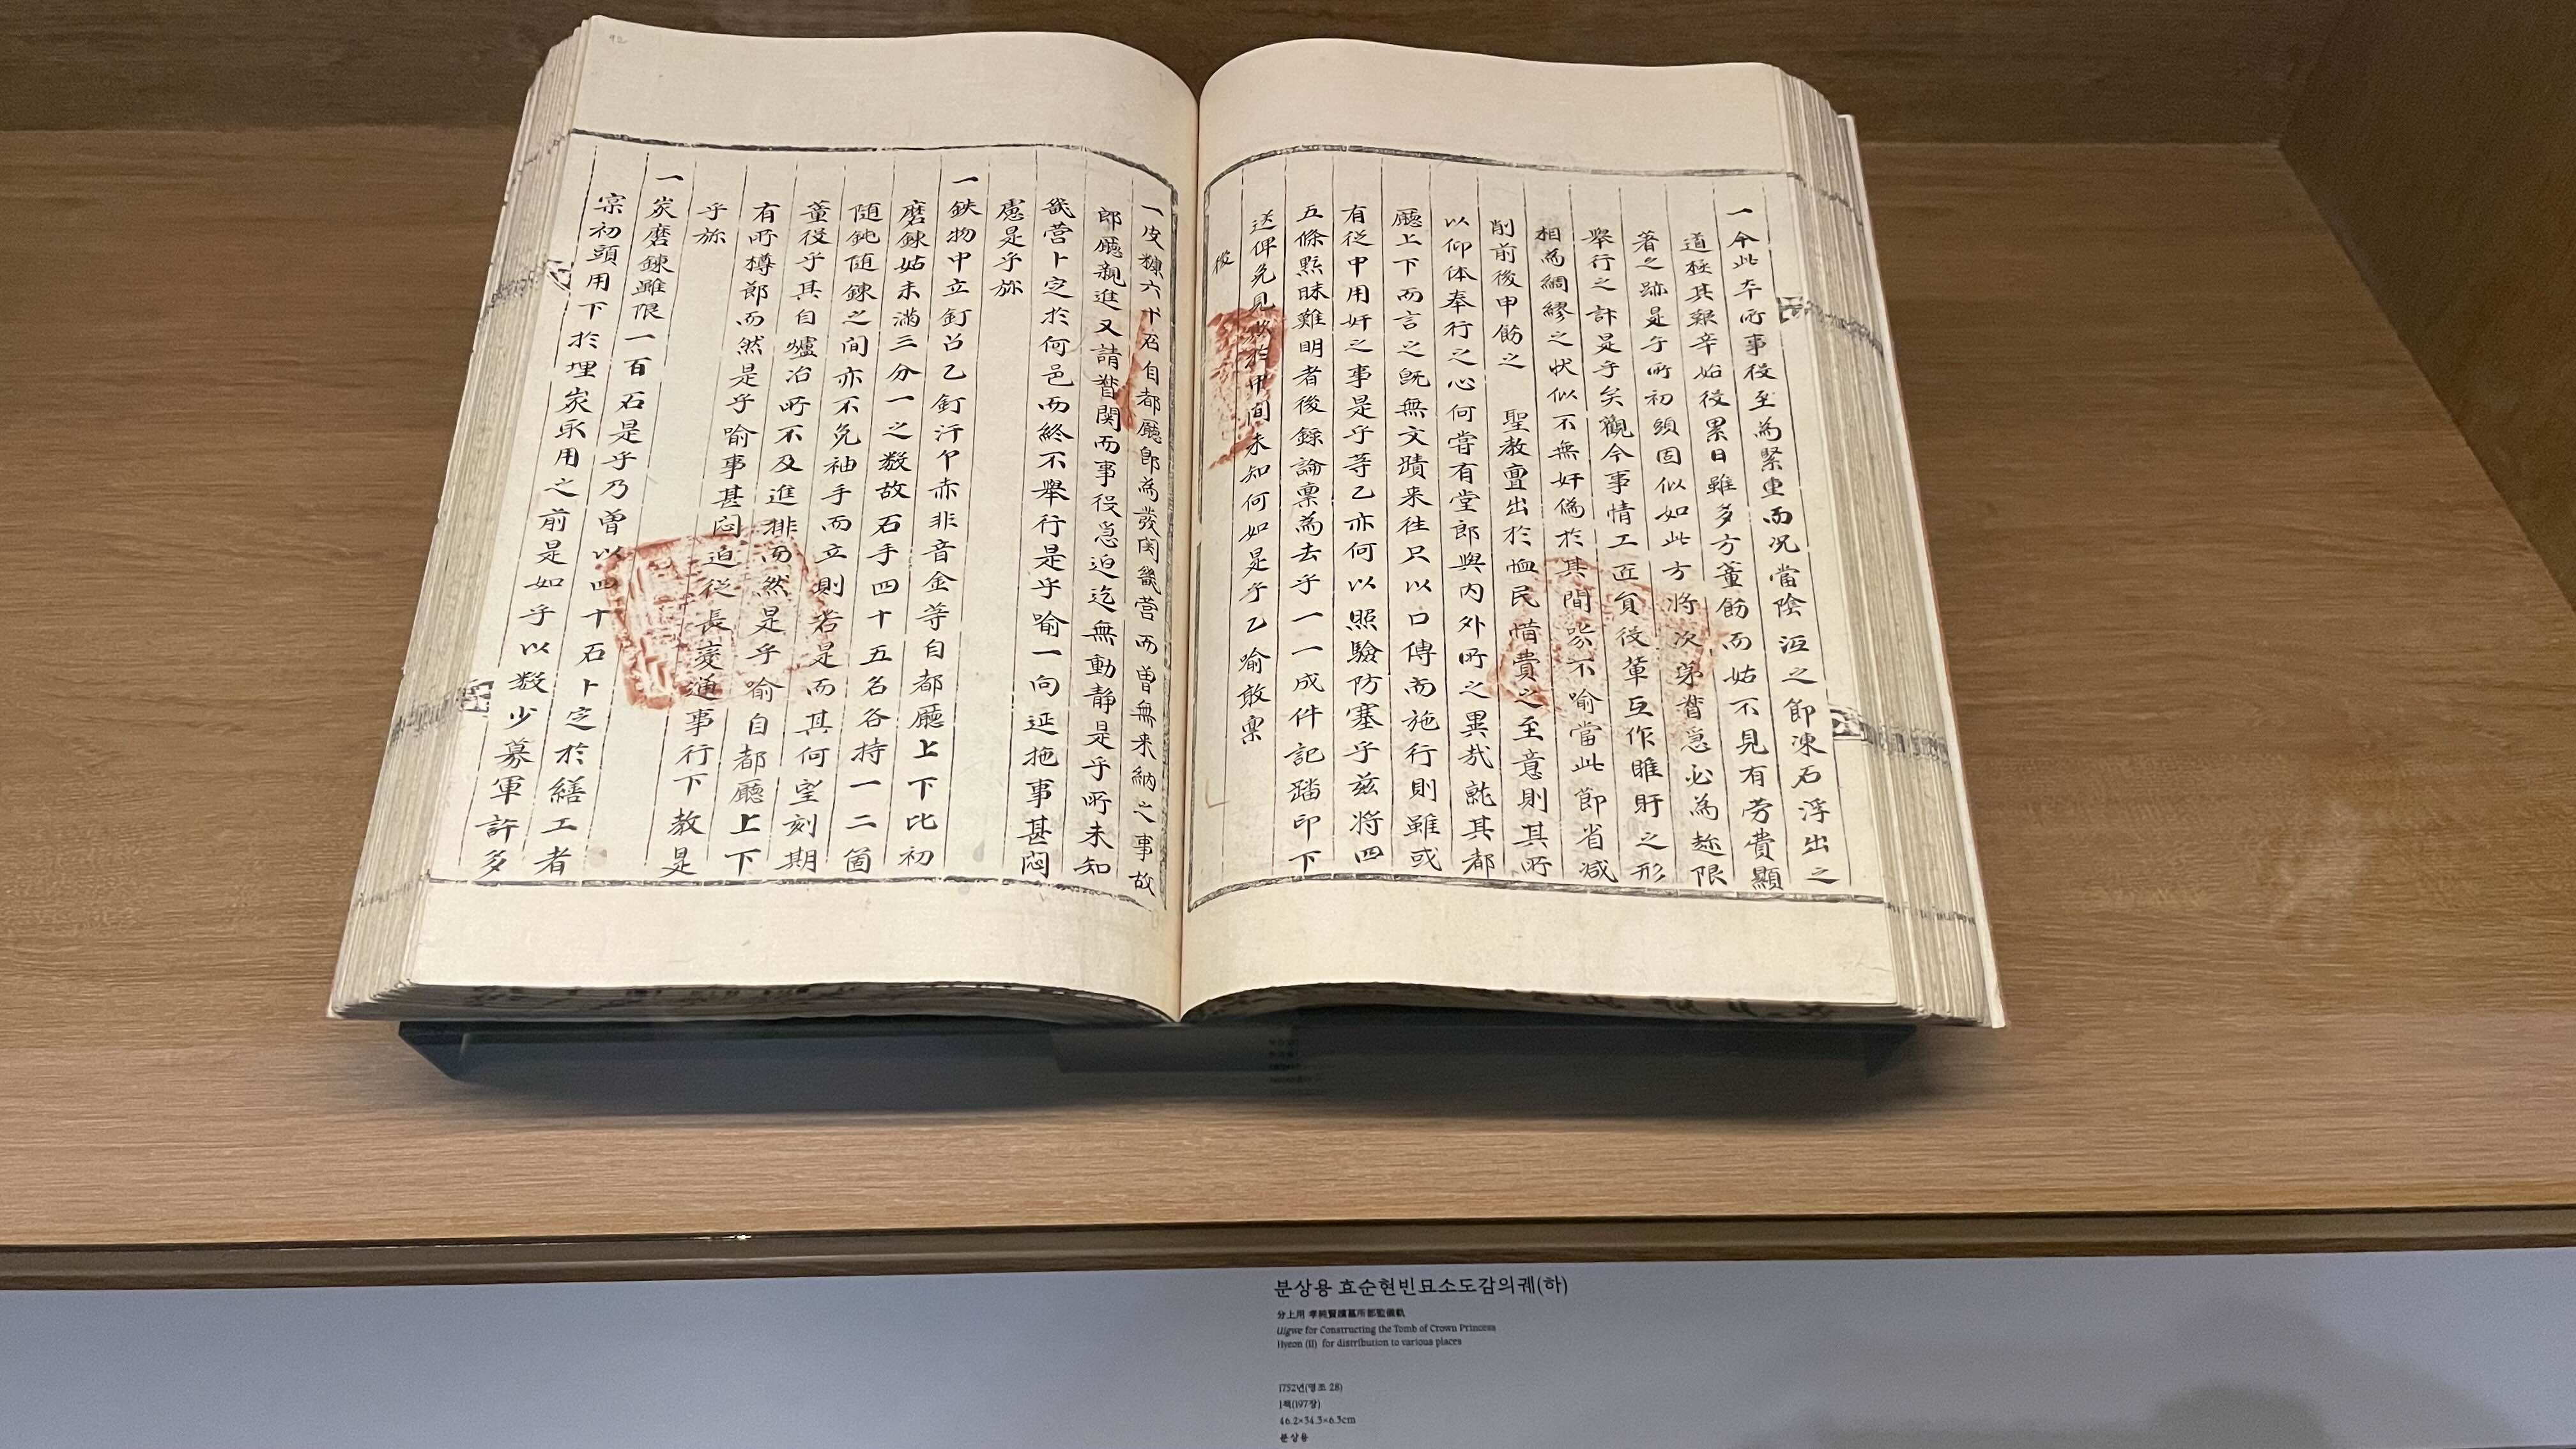 一今此本所事役至為緊重而況當陰沍之節凍石浮出之
道極其艱辛始役累日雖多方董飭而姑不見有勞費顯
著之跡是乎所初頭固似如此方將次第督急必為趁限
舉行之計是乎矣觀今事情工匠負役輩互作睢盱之形
相為綢繆之狀似不無奸偽於其間不喻當此節省減
削前後申飭之 聖教亶出於恤民惜費之至意則其所
以仰体奉行之心何嘗有堂郎與內外所之異哉就其都
廳上下而言之既無文蹟来往只以口傳而施行則雖或
有從中用奸之事是乎等乙亦何以照驗防塞乎茲將四
五條點昧難明者後錄論稟為去乎一一成件記踏印下
送俾免見於中間未知何如是乎乙喻敢稟
後
一皮糠六十石自都廳郎為發関畿營而曾無来納之事故
郎廳親進又請督関而事役急迫迄無動静是乎所未知
畿營卜定於何邑而終不舉行是乎喻一向延拖事甚悶
慮是乎旀
一鉄物中立釘召乙釘汗亇赤非音金等自都廳上下比初
磨鍊姑未滿三分一之数故石手四十五名各持一二箇
随鈍随鍊之間亦不免袖手而立則若是而其何望刻期
董役乎其自爐冶所不及進排而然是乎喻自都廳上下
有所樽節而然是乎喻事甚悶迫從長変通事行下教是
乎旀
一炭磨鍊雖限一百石是乎乃曾以四十石卜定於繕工者
宗初頭用下於埋炭取用之前是如乎以数少募軍許多
분상용 효순현빈묘소도감의궤(하)
分上用 孝純賢嬪墓所都監儀軌
Uigwe for Constructing the Tomb of Crown Princess
Hyeon (II) for distribution to various places
1752년(영조 28)
1책(197장)
46.2×34.3×6.3cm
분상용